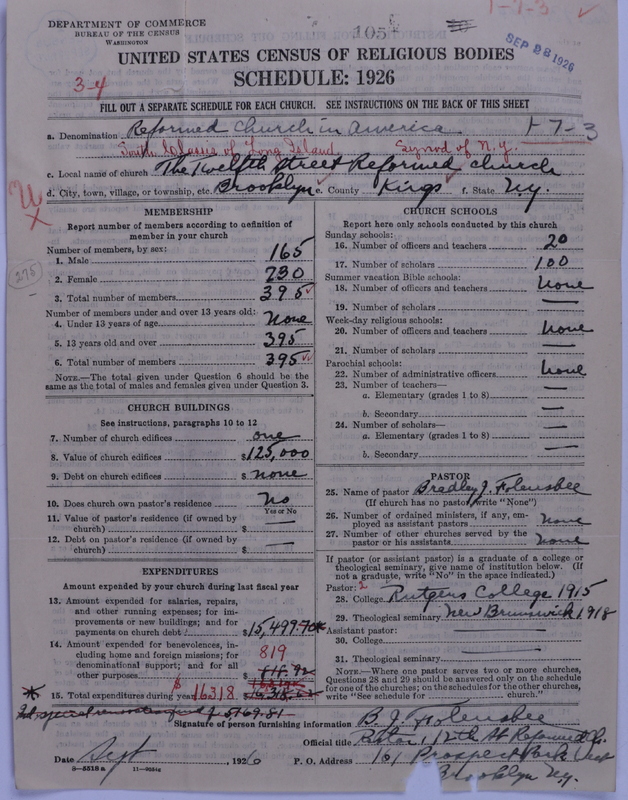 DEPARTMENT OF COMMERCE
BUREAU OF THE CENSUS
WASHINGTON
1-7-3
SEP 28 1926
UNITED STATES CENSUS OF RELIGIOUS BODIES
SCHEDULE: 1926
3-4
FILL OUT A SEPARATE SCHEDULE FOR EACH CHURCH. SEE INSTRUCTIONS ON THE BACK OF THIS SHEET
a. Denomination Reformed Church in America 1-7-3
South Classis of Long Island Synod of N.Y.
c. Local name of church The Twelfth Street Reformed Church
d. City, town, village, or township, etc. Brooklyn e. County Kings f. State N.Y.
MEMBERSHIP
Report number of members according to definition of member in your church
Number of members, by sex:
1. Male 165
2. Female 230
3. Total number of members 395
Number of members under and over 13 years old:
4. Under 13 years of age None
5. 13 years old and over 395
6. Total number of members 395
NOTE.—The total given under Question 6 should be the same as the total of males and females given under Question 3.
275
CHURCH BUILDINGS
See instructions, paragraphs 10 to 12
7. Number of church edifices one
8. Value of church edifices $125,000
9. Debt on church edifices $ none
10. Does church own pastor's residence No
Yes or No
11. Value of pastor's residence (if owned by church) $ —
12. Debt on pastor's residence (if owned by church) $ —
EXPENDITURES
Amount expended by your church during last fiscal year
13. Amount expended for salaries, repairs, and other running expenses; for improvements or new buildings; and for payments on church debt $15,499.70*
14. Amount expended for benevolences, including home and foreign missions; for denominational support; and for all other purposes 819
15. Total expenditures during year $16318
CHURCH SCHOOLS
Report here only schools conducted by this church
Sunday schools:
16. Number of officers and teachers 20
17. Number of scholars 100
Summer vacation Bible schools:
18. Number of officers and teachers None
19. Number of scholars —
Week-day religious schools:
20. Number of officers and teachers None
21. Number of scholars —
Parochial schools:
22. Number of administrative officers None
23. Number of teachers—
a. Elementary (grades 1 to 8) —
b. Secondary —
24. Number of scholars—
a. Elementary (grades 1 to 8) —
b. Secondary —
PASTOR
25. Name of pastor Bradley J. Folensbee
(If church has no pastor, write "None")
26. Number of ordained ministers, if any, employed as assistant pastors none
27. Number of other churches served by the pastor or his assistants none
If pastor (or assistant pastor) is a graduate of a college or theological seminary, give name of institution below. (If not a graduate, write "No" in the space indicated.)
Pastor: 2
28. College Rutgers College 1915
29. Theological seminary New Brunswick 1918
Assistant pastor:
30. College —
31. Theological seminary —
NOTE.—Where one pastor serves two or more churches, Questions 28 and 29 should be answered only on the schedule for one of the churches; on the schedules for the other churches, write "See schedule for church."
Signature of person furnishing information B. J. Folensbee
Official title Pastor, 12th St Reformed Ch.
Date Sept, 1926 P. O. Address 161 Prospect Park West
Brooklyn N.Y.
8-5518 a